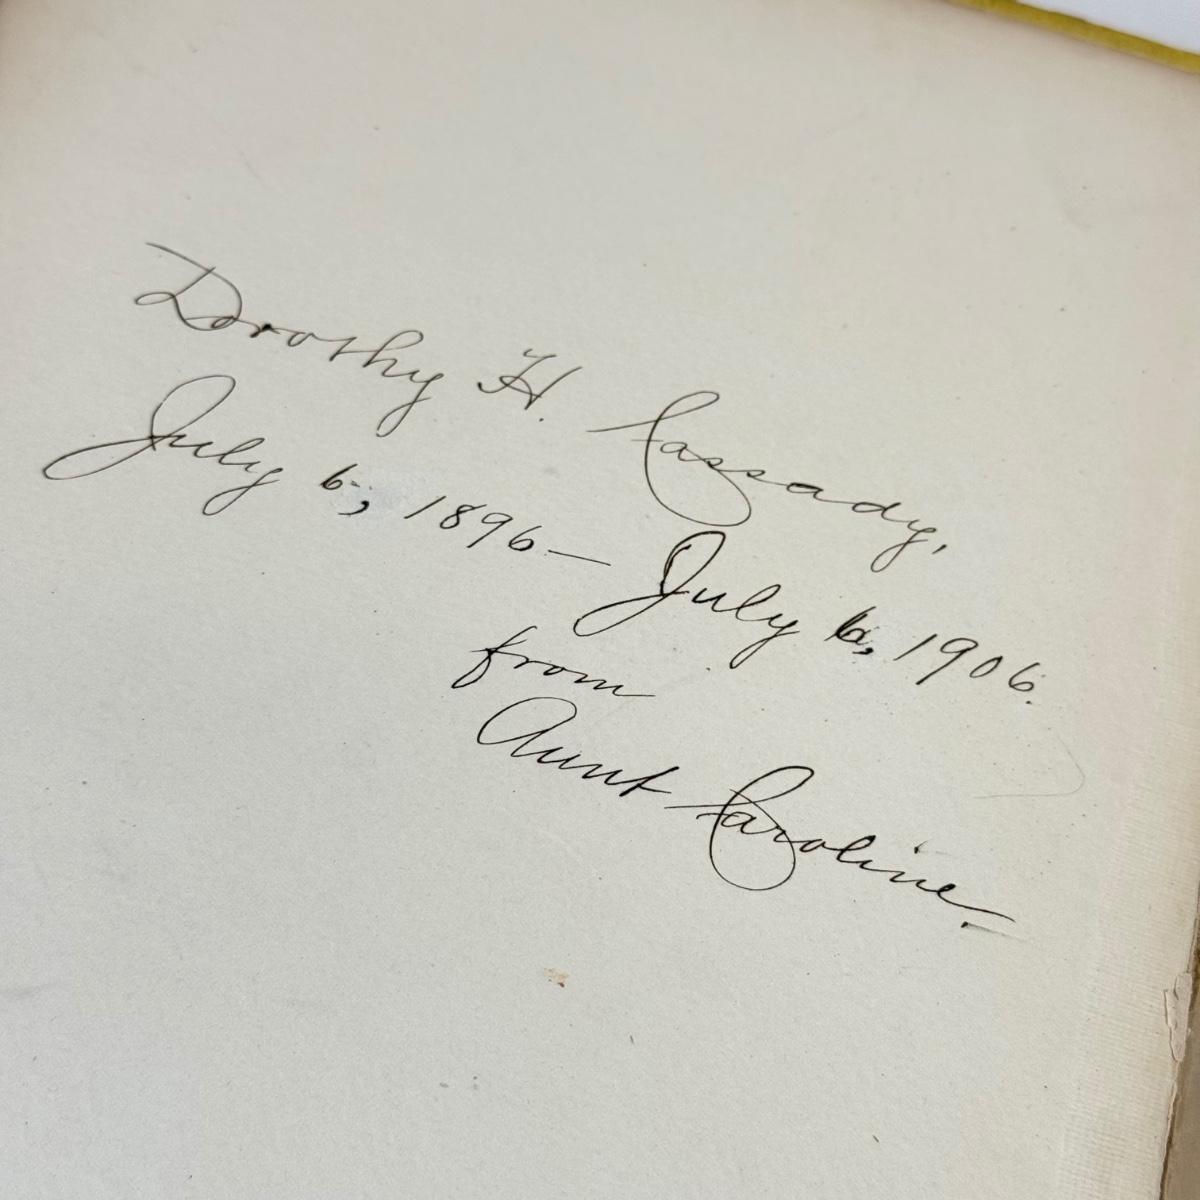 Dorothy H. Cassady,
July 6, 1896 — July 6, 1906.
from
Aunt Caroline.